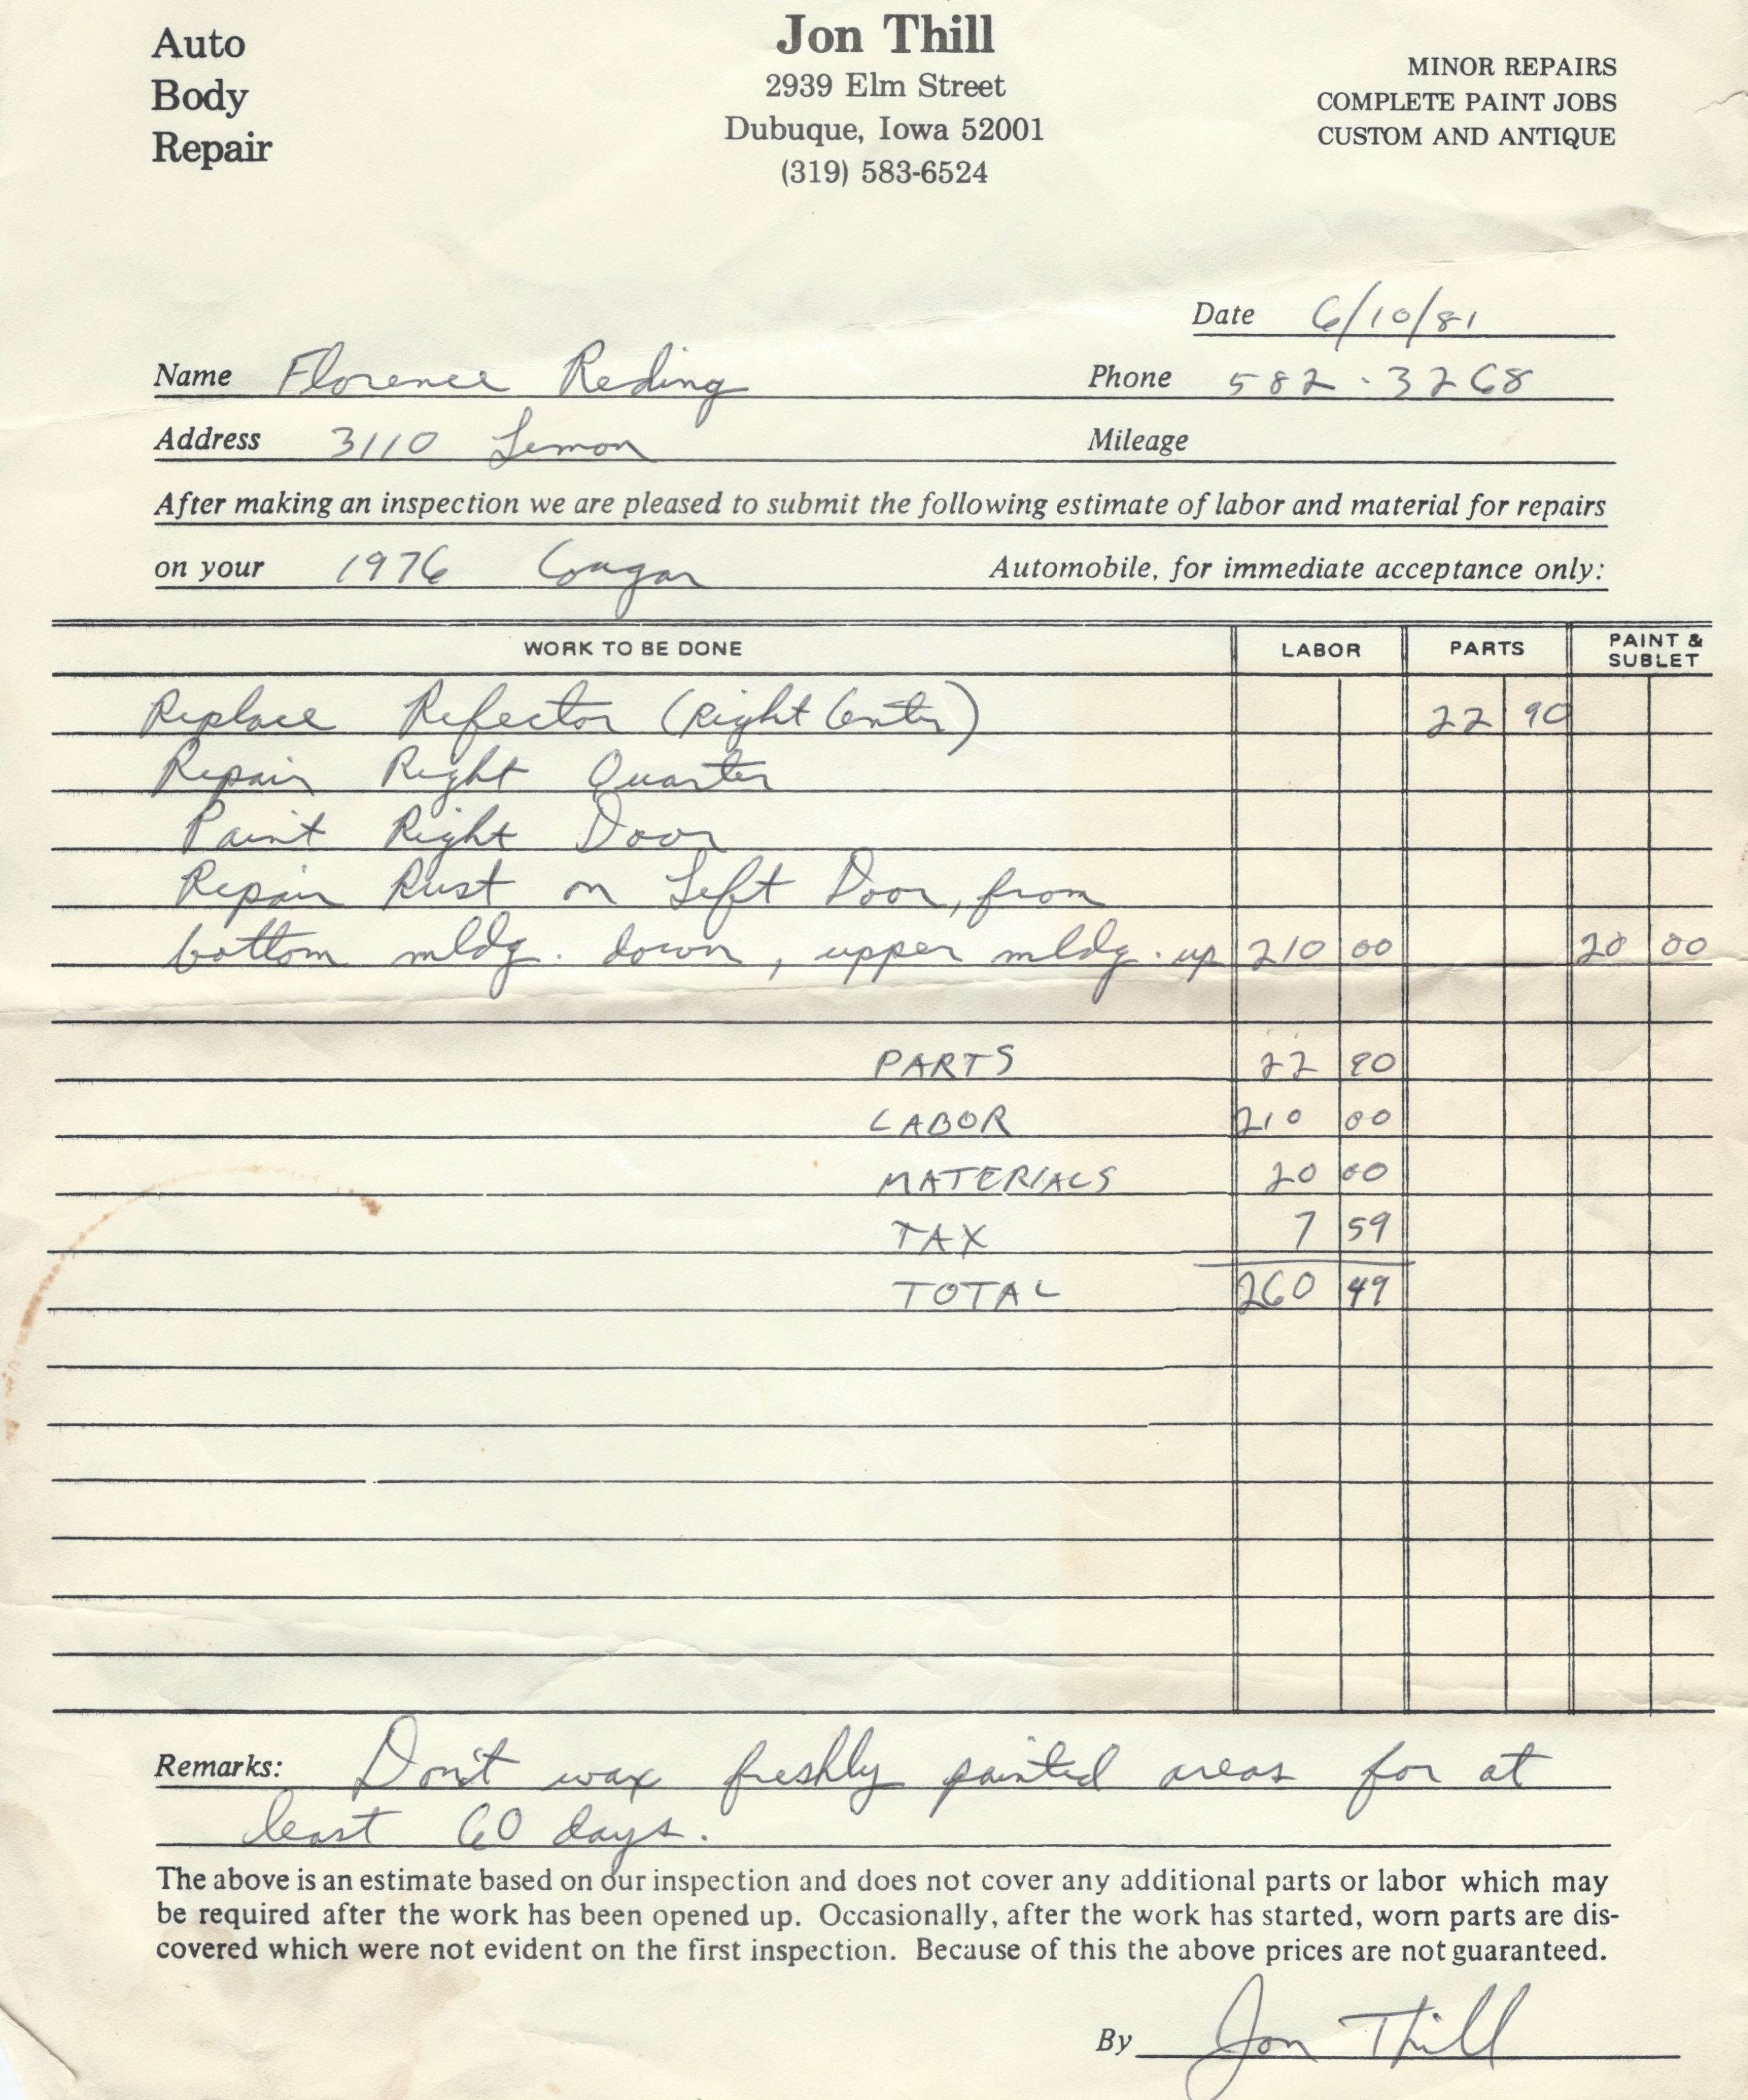 Auto
Body
Repair
Jon Thill
2939 Elm Street
Dubuque, Iowa 52001
(319) 583-6524
MINOR REPAIRS
COMPLETE PAINT JOBS
CUSTOM AND ANTIQUE
Date 6/10/81
Name Florence Reding Phone 582-3268
Address 3110 Lemon Mileage
After making an inspection we are pleased to submit the following estimate of labor and material for repairs
on your 1976 Cougar Automobile, for immediate acceptance only:
WORK TO BE DONE LABOR PARTS PAINT & SUBLET
Replace Refector (Right Center) 22 90
Repair Right Quarter
Paint Right Door
Repair Rust on Left Door, from
bottom mldg. down, upper mldg. up 210 00 20 00
PARTS 22 90
LABOR 210 00
MATERIALS 20 00
TAX 7 59
TOTAL 260 49
Remarks: Don't wax freshly painted areas for at
least 60 days.
The above is an estimate based on our inspection and does not cover any additional parts or labor which may
be required after the work has been opened up. Occasionally, after the work has started, worn parts are dis-
covered which were not evident on the first inspection. Because of this the above prices are not guaranteed.
By Jon Thill